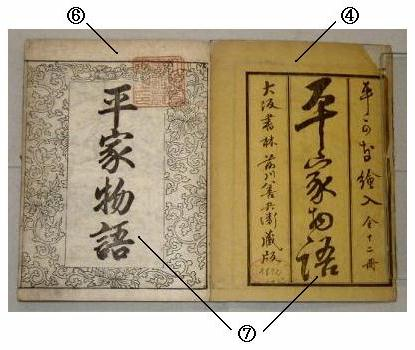 ⑥
④
平かな繪入 全十二冊
平家物語
大阪書林 前川善兵衛藏版
平家物語
⑦